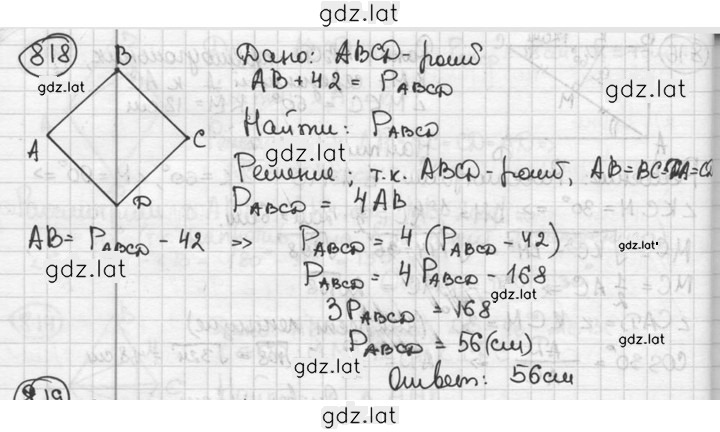 gdz.lat
818
B
A
C
D
gdz.lat
Дано: ABCD - ромб
AB + 42 = P_ABCD
gdz.lat
Найти: P_ABCD
gdz.lat
Решение; т.к. ABCD - ромб, AB=BC=
P_ABCD = 4AB
AB = P_ABCD - 42 => P_ABCD = 4 (P_ABCD - 42)
gdz.lat
gdz.lat
P_ABCD = 4 P_ABCD - 168
gdz.lat
3P_ABCD = 168
P_ABCD = 56 (см)
gdz.lat
Ответ: 56 см
819
gdz.lat